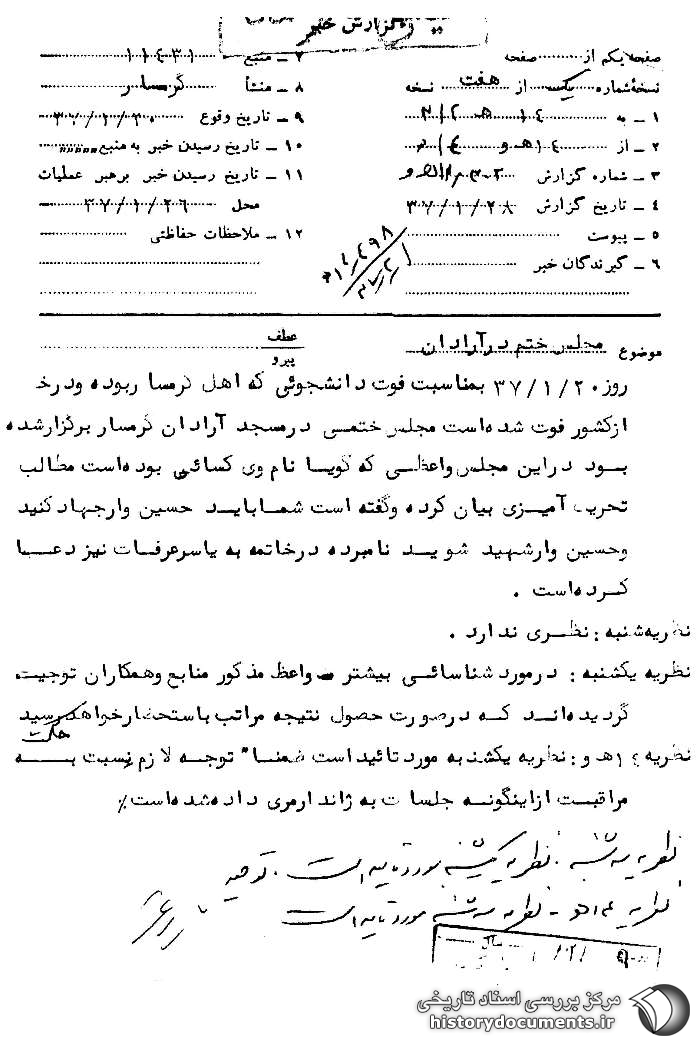 گزارش خبر
صفحه یکم از صفحه
نسخه شماره یک از هفت نسخه
۱ ـ به ۱٤ هـ ۳۱۲
۲ ـ از ۱٤ هـ و
۳ ـ شماره گزارش
٤ ـ تاریخ گزارش ۳۷/۱/۲۸
۵ ـ پیوست
۶ ـ گیرندگان خبر
۷ ـ منبع ۱۱٤۳۱
۸ ـ منشأ گرمسار
۹ ـ تاریخ وقوع ۳۷/۱/۲۰
۱۰ ـ تاریخ رسیدن خبر به منبع
۱۱ ـ تاریخ رسیدن خبر برهبر عملیات
محل ۳۷/۱/۲۶
۱۲ ـ ملاحظات حفاظتی
موضوع مجلس ختم در آرادان
عطف
پیرو
روز ۳۷/۱/۲۰ بمناسبت فوت دانشجوئی که اهل گرمسار بوده و در خ
از کشور فوت شده است مجلس ختمی در مسجد آرادان گرمسار برگزار شده
بود در این مجلس واعظی که گویا نام وی کسائی بوده است مطالب
تحریک آمیزی بیان کرده و گفته است شما باید حسین وار جهاد کنید
و حسین وار شهید شوید نامبرده در خاتمه به یاسر عرفات نیز دعا
کرده است .
نظریه شنبه : نظری ندارد .
نظریه یکشنبه : در مورد شناسائی بیشتر واعظ مذکور منابع و همکاران توجیه
گردیده اند که در صورت حصول نتیجه مراتب باستحضار خواهد رسید
نظریه ۱٤ هـ و : نظریه یکشنبه مورد تائید است ضمنا" توجه لازم نسبت به
مراقبت از اینگونه جلسات به ژاندارمری داده شده است٪
نظریه سه شنبه . نظریه یکشنبه مورد تایید است . توجیه
نظریه ۱٤ هـ و - نظریه سه شنبه مورد تایید است
مرکز بررسی اسناد تاریخی
historydocuments.ir